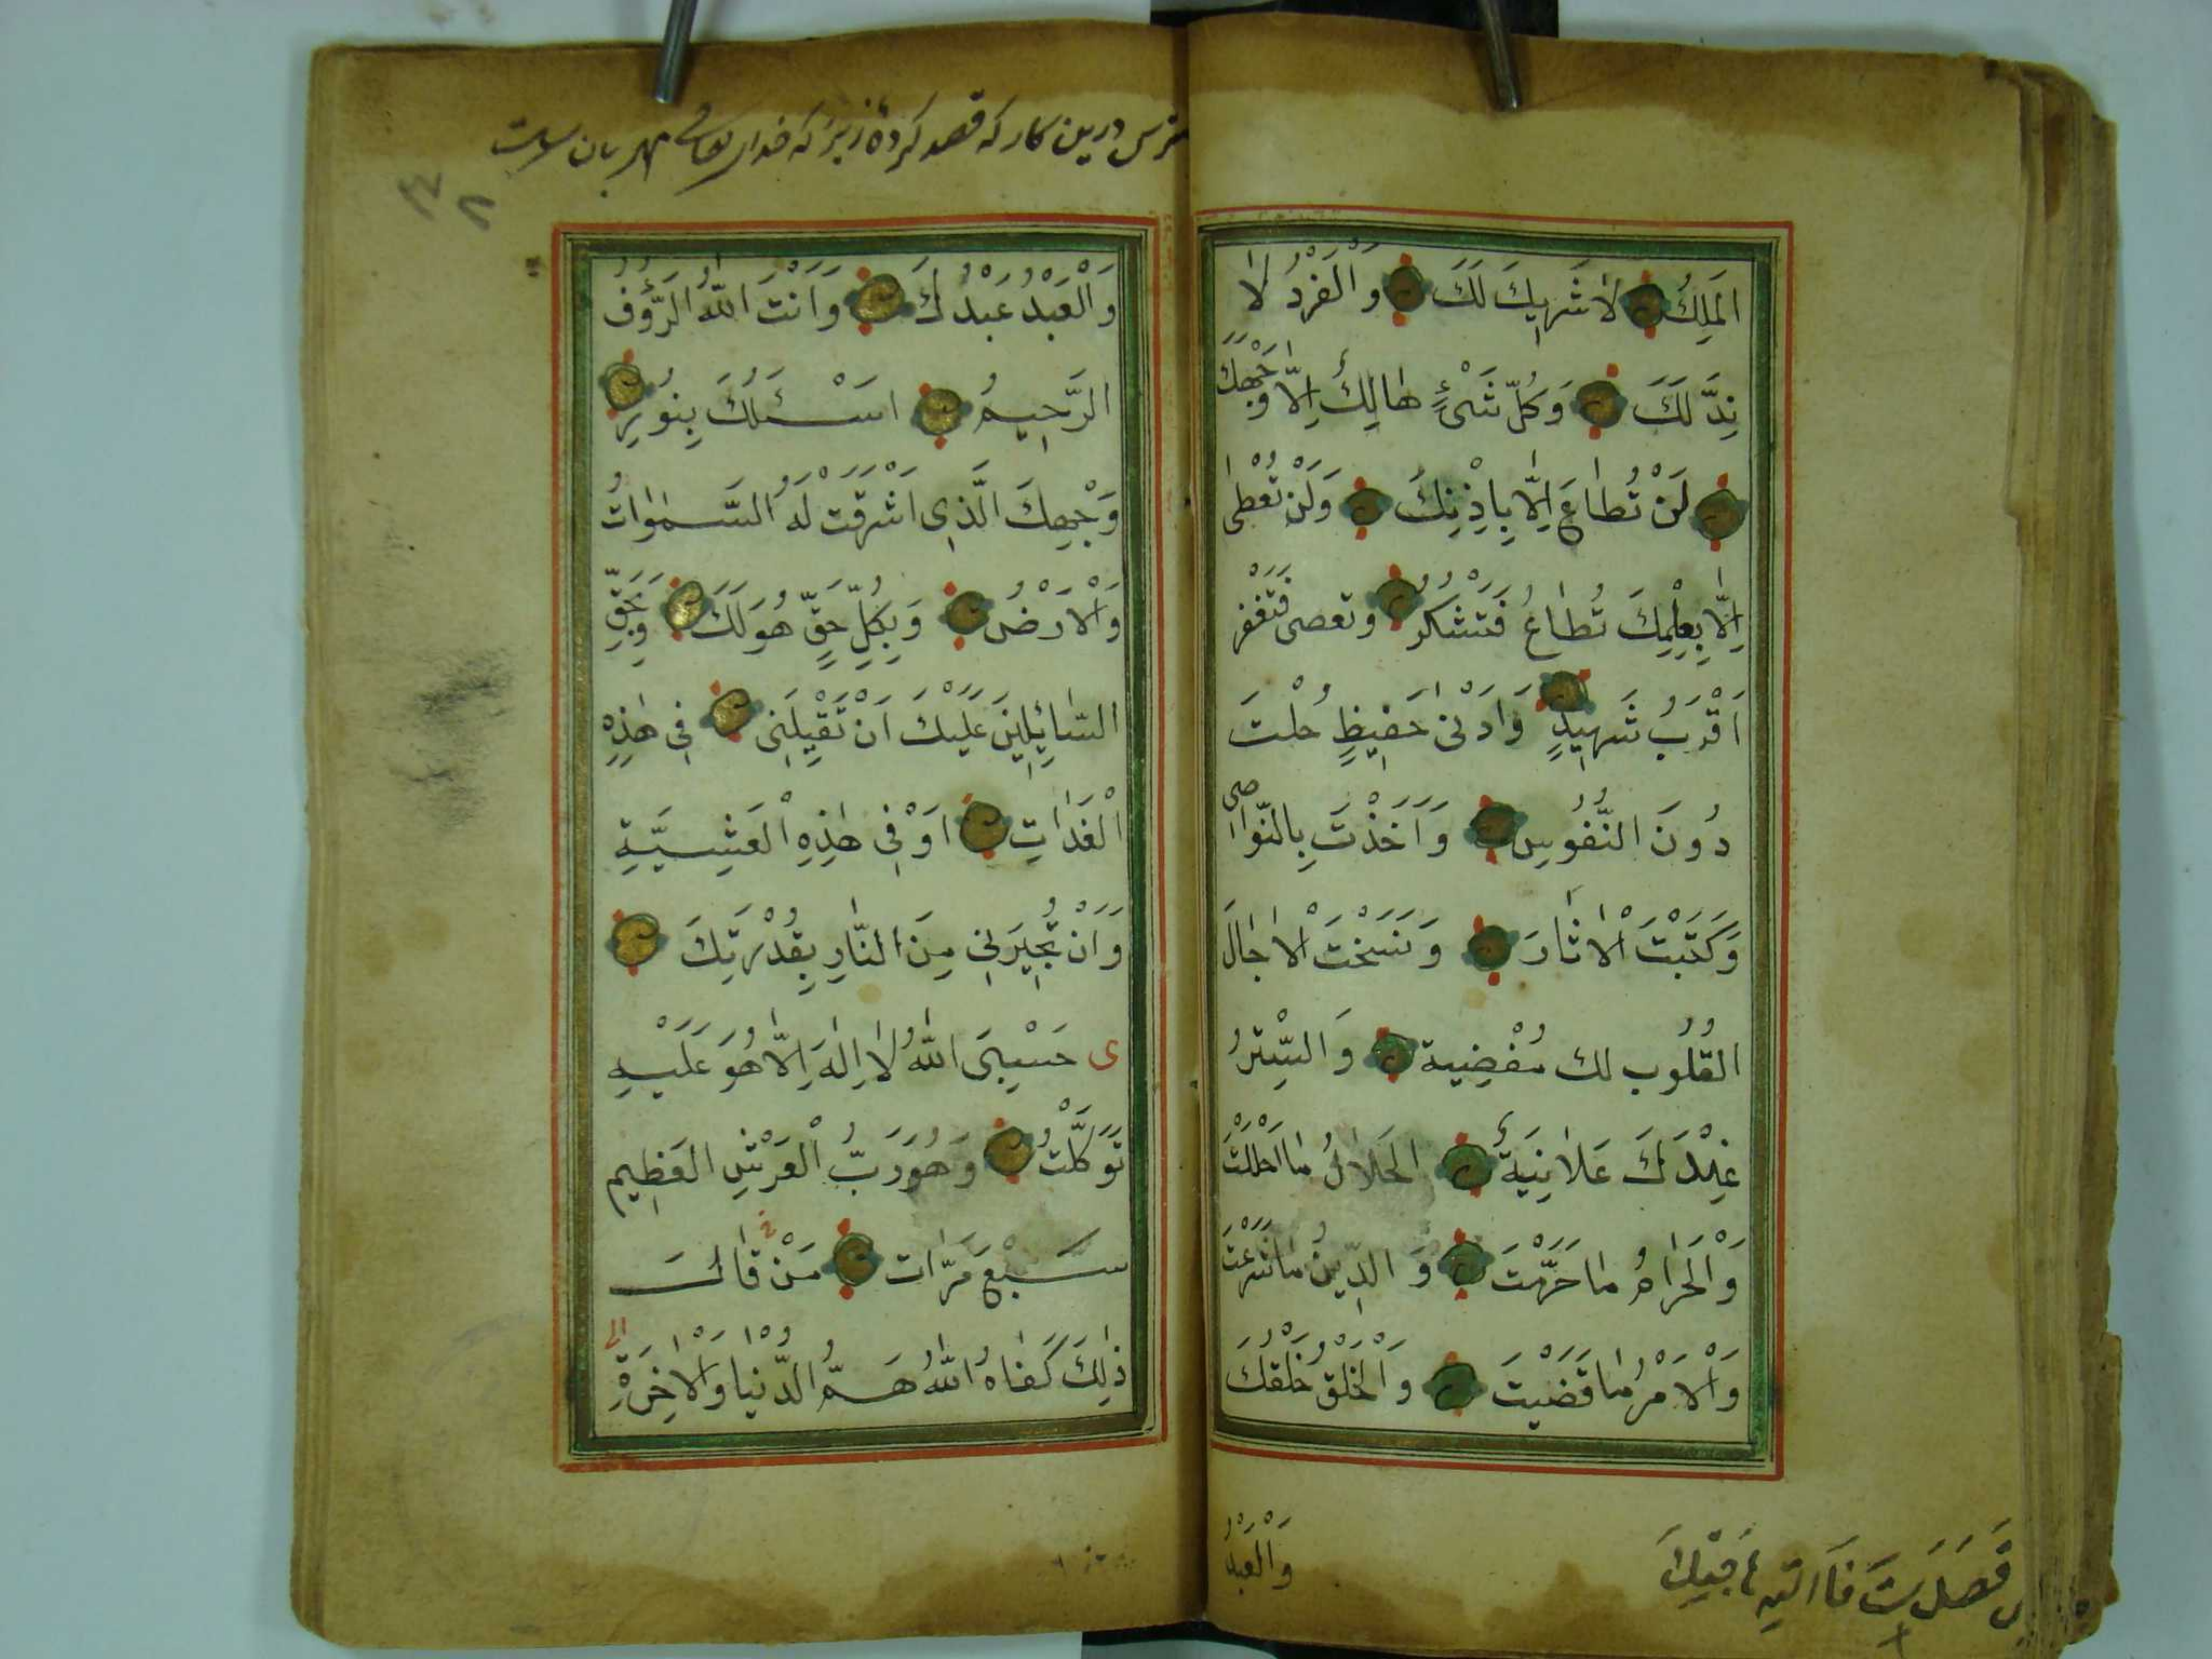 اَلْمَلِكُ لَا شَرِيكَ لَكَ وَالْفَرْدُ لَا
نِدَّ لَكَ وَكُلُّ شَىْءٍ هَالِكٌ اِلَّا وَجْهَكَ
لَنْ تُطَاعَ اِلَّا بِاِذْنِكَ وَلَنْ تُعْطٰى
اِلَّا بِعِلْمِكَ تُطَاعُ فَتَشْكُرُ وتعصى فَتَغْفِر
اَقْرَبُ شَهِيدٍ وَاَدْنٰى حَفِيظٍ حُلْتَ
دُونَ النُّفُوسِ وَاَخَذْتَ بِالنَّوَاصِى
وَكَتَبْتَ الْاٰثَارَ وَنَسَخْتَ الْاٰجَالَ
القُلُوب لك مُفْضِية وَالسِّتْرُ
عِنْدَكَ عَلَانِيَةٌ الحَلَالُ مَا اَحْلَلْتَ
وَالْحَرَامُ مَا حَرَّمْتَ وَالدِّينُ مَا شَرَعْتَ
وَالْاَمْرُ مَا قَضَيْتَ وَالْخَلْقُ خَلْقُكَ
وَالْعَبْدُ
درین کار که قصد کردهٔ زیرا که خدای تعالی مهربان است
۳۲
وَالْعَبْدُ عَبْدُكَ وَاَنْتَ اللّٰهُ الرَّؤُفُ
الرَّحِيمُ اَسْئَلُكَ بِنُورِ
وَجْهِكَ الَّذِى اَشْرَقَتْ لَهُ السَّمٰوَاتُ
وَالْاَرْضُ وَبِكُلِّ حَقٍّ هُوَ لَكَ وَبِحَقِّ
السَّائِلِينَ عَلَيْكَ اَنْ تُقِيلَنِى فِى هٰذِهِ
الْغَدَاتِ اَوْ فِى هٰذِهِ الْعَشِيَّةِ
وَاَنْ تُجِيرَنِى مِنَ النَّارِ بِقُدْرَتِكَ
ى حَسْبِىَ اللّٰهُ لَا اِلٰهَ اِلَّا هُوَ عَلَيْهِ
تَوَكَّلْتُ وَهُوَ رَبُّ الْعَرْشِ الْعَظِيمِ
سَبْعَ مَرَّات مَنْ قَالَ
ذٰلِكَ كَفَاهُ اللّٰهُ هَمَّ الدُّنْيَا وَالْاٰخِرَةِ